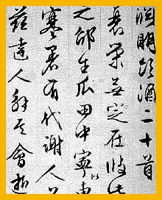 淵明飲酒二十首
衰榮無定在彼此
之邵生瓜田中寧
寒暑有代謝人
茲達人解其會逝